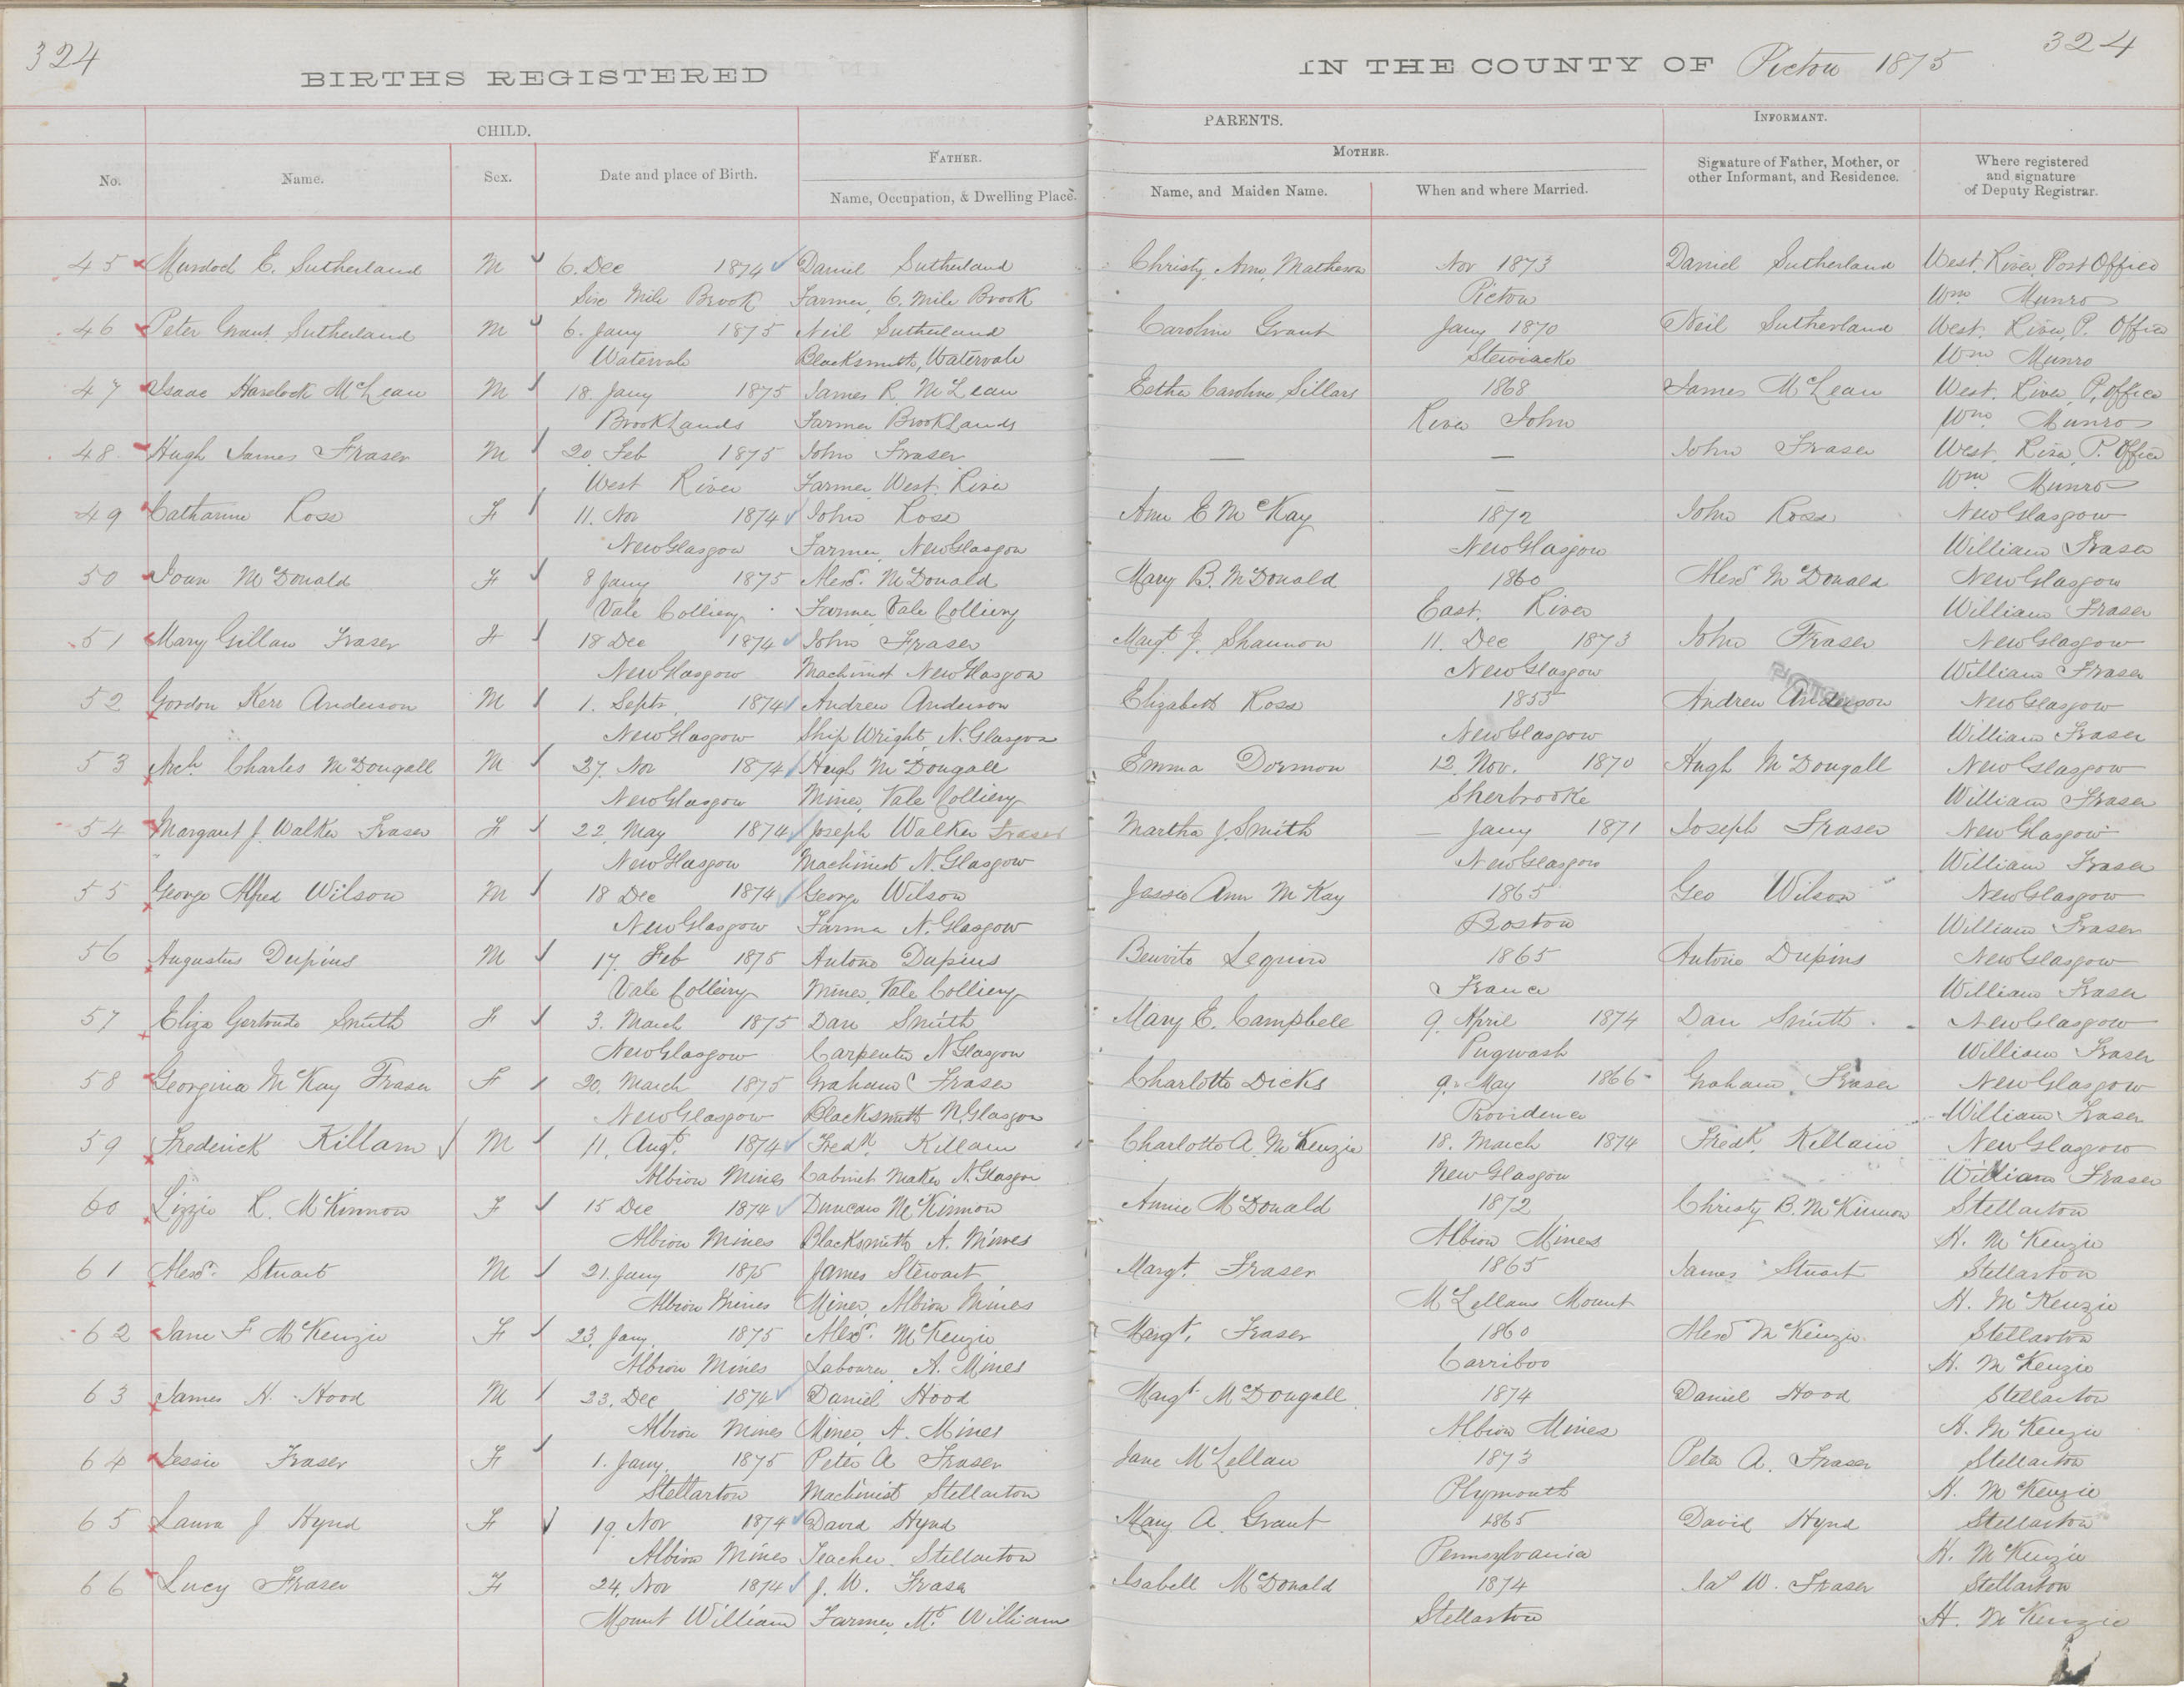 324
324
BIRTHS REGISTERED IN THE COUNTY OF Pictou 1875
CHILD. PARENTS. INFORMANT.
FATHER. MOTHER.
No. Name. Sex. Date and place of Birth. Name, Occupation, & Dwelling Place. Name, and Maiden Name. When and where Married. Signature of Father, Mother, or other Informant, and Residence. Where registered and signature of Deputy Registrar.
45 Murdoch E. Sutherland M 6. Dec 1874 Daniel Sutherland Christy Ann Matheson Nov 1873 Daniel Sutherland West River Post Office
Six Mile Brook Farmer, 6. Mile Brook Pictou Wm Munro
46 Peter Grant Sutherland M 6. Jany 1875 Neil Sutherland Caroline Grant Jany 1870 Neil Sutherland West River P. Office
Watervale Blacksmith, Watervale Stewiacke Wm Munro
47 Isaac Havelock McLean M 18. Jany 1875 James R. McLean Esther Caroline Sillars 1868 James McLean West River P. Office
BrookLands Farmer BrookLands River John Wm Munro
48 Hugh James Fraser M 20 Feb 1875 John Fraser — — John Fraser West River P. Office
West River Farmer West River — Wm Munro
49 Catharine Ross F 11. Nov 1874 John Ross Ann E McKay 1872 John Ross New Glasgow
New Glasgow Farmer, New Glasgow New Glasgow William Fraser
50 Joan McDonald F 8 Jany 1875 Alexr. McDonald Mary B. McDonald 1860 Alexr McDonald New Glasgow
Vale Colliery Farmer Vale Colliery East River William Fraser
51 Mary Gillan Fraser F 18 Dec 1874 John Fraser Margt. J. Shannon 11. Dec 1873 John Fraser New Glasgow
New Glasgow Machinist New Glasgow New Glasgow William Fraser
52 Gordon Kerr Anderson M 1. Septr. 1874 Andrew Anderson Elizabeth Ross 1855 Andrew Anderson New Glasgow
New Glasgow Ship Wright, N. Glasgow New Glasgow William Fraser
53 Arch. Charles McDougall M 27. Nov 1874 Hugh McDougall Emma Dormon 12. Nov. 1870 Hugh McDougall New Glasgow
New Glasgow Miner, Vale Colliery Sherbrooke William Fraser
54 Margaret J. Walker Fraser F 22. May 1874 Joseph Walker Fraser Martha J. Smith — Jany 1871 Joseph Fraser New Glasgow
New Glasgow Machinist N. Glasgow New Glasgow William Fraser
55 George Alfred Wilson M 18 Dec 1874 George Wilson Jessie Ann McKay 1865 Geo Wilson New Glasgow
New Glasgow Farmer N. Glasgow Boston William Fraser
56 Augustus Dupins M 17. Feb 1875 Antono Dupins Benvito Lequin 1865 Antonio Dupins New Glasgow
Vale Colleiry Miner, Vale Colliery France William Fraser
57 Eliza Gertrude Smith F 3. March 1875 Dan Smith Mary E. Campbell 9. April 1874 Dan Smith New Glasgow
New Glasgow Carpenter N Glasgow Pugwash William Fraser
58 Georgina McKay Fraser F 20. March 1875 Graham Fraser Charlotte Dicks 9. May 1866 Graham Fraser New Glasgow
New Glasgow Blacksmith N. Glasgow Providence William Fraser
59 Frederick Killam M 11. Augt. 1874 Fredk. Killam Charlotte A. McKenzie 18. March 1874 Fredk. Killam New Glasgow
Albion Mines Cabinet Maker N. Glasgow New Glasgow William Fraser
60 Lizzie R. McKinnon F 15 Dec 1874 Duncan McKinnon Annie McDonald 1872 Christy B. McKinnon Stellarton
Albion Mines Blacksmith A. Mines Albion Mines H. McKenzie
61 Alexr. Stuart M 21. Jany 1875 James Stewart Margt. Fraser 1865 James Stuart Stellarton
Albion Mines Miner, Albion Mines McLellans Mount H. McKenzie
62 Jane F McKenzie F 23. Jany. 1875 Alexr. McKenzie Margt. Fraser 1860 Alexr McKenzie Stellarton
Albion Mines Labourer, A. Mines Carriboo H. McKenzie
63 James H. Hood M 23. Dec 1874 Daniel Hood Margt McDougall 1874 Daniel Hood Stellarton
Albion Mines Miner A. Mines Albion Mines H. McKenzie
64 Jessie Fraser F 1. Jany. 1875 Peter A Fraser Jane McLellan 1873 Peter A. Fraser Stellarton
Stellarton Machinist Stellarton Plymouth H. McKenzie
65 Laura J Hynd F 19. Nov 1874 David Hynd Mary A. Grant 1865 David Hynd Stellarton
Albion Mines Teacher. Stellarton Pennsylvania H. McKenzie
66 Lucy Fraser F 24. Nov 1874 J. W. Fraser Isabell McDonald 1874 Jas W. Fraser Stellarton
Mount William Farmer, Mt. William Stellarton H. McKenzie